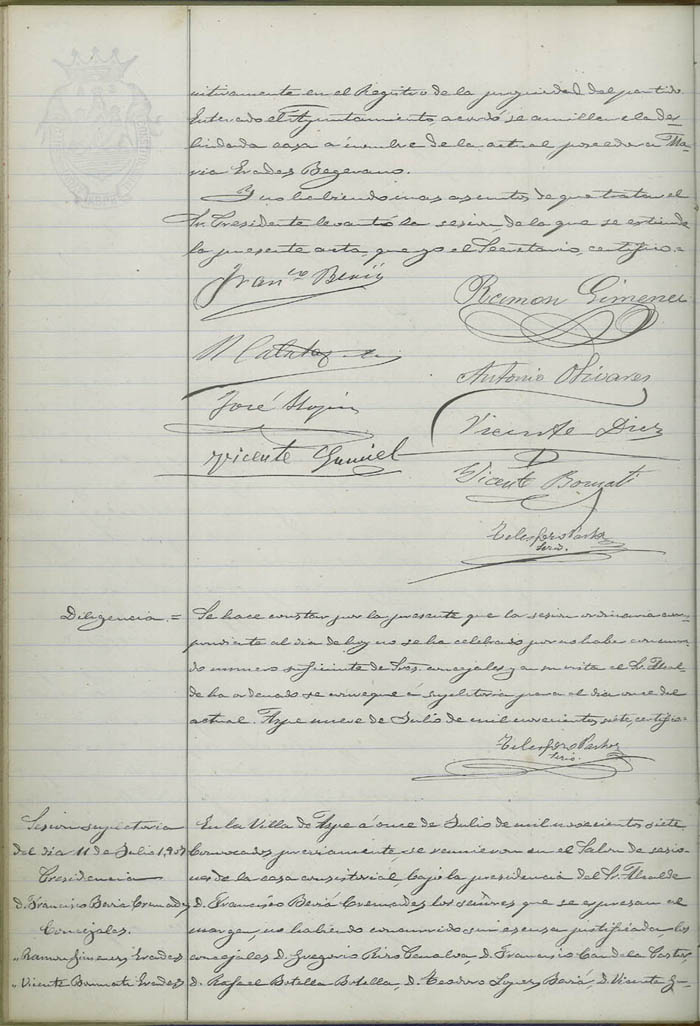 nitivamente en el Registro de la propiedad del partido
Enterado el Ayuntamiento, acordó se amillare la des-
lindada casa á nombre de la actual poseedora Ma-
ria Erades Begerano.
Y no habiendo mas asuntos de que tratar el
Sr. Presidente levantó la sesion, de la que se estiende
la presente acta, que yo el Secretario, certifico =
Franco Beriá
Ramon Gimenez
Antonio Olivares
José
Vicente Diez
Vicente
Vicente Bonmati
Telesforo Pastor
Serio.
Diligencia =
Se hace constar por la presente que la sesion ordinaria corres-
pondiente al dia de hoy no se ha celebrado por no haber concurri-
do número suficiente de Sres. concejales y en su vista el Sr. Alcal-
de ha ordenado se convoque á supletoria para el dia once del
actual. Aspe nueve de Julio de mil novecientos siete, certifico =
Telesforo Pastor
Serio.
Sesion supletoria
del dia 11 de Julio 1,907
Presidencia
D. Francisco Beriá Cremades
Concejales.
" Ramon Gimenez Erades
" Vicente Bonmati Erades
En la Villa de Aspe á once de Julio de mil novecientos siete
Convocados previamente, se reunieron en el Salon de sesio-
nes de la casa consistorial, bajo la presidencia del Sr. Alcalde
D. Francisco Beriá Cremades los señores que se expresan al
margen, no habiendo concurrido sin escusa justificada los
concejales D. Gregorio Rizo Penalva, D. Francisco Candela Cantos,
D. Rafael Botella Botella, D. Teodoro Lopez Beriá, D. Vicente G-